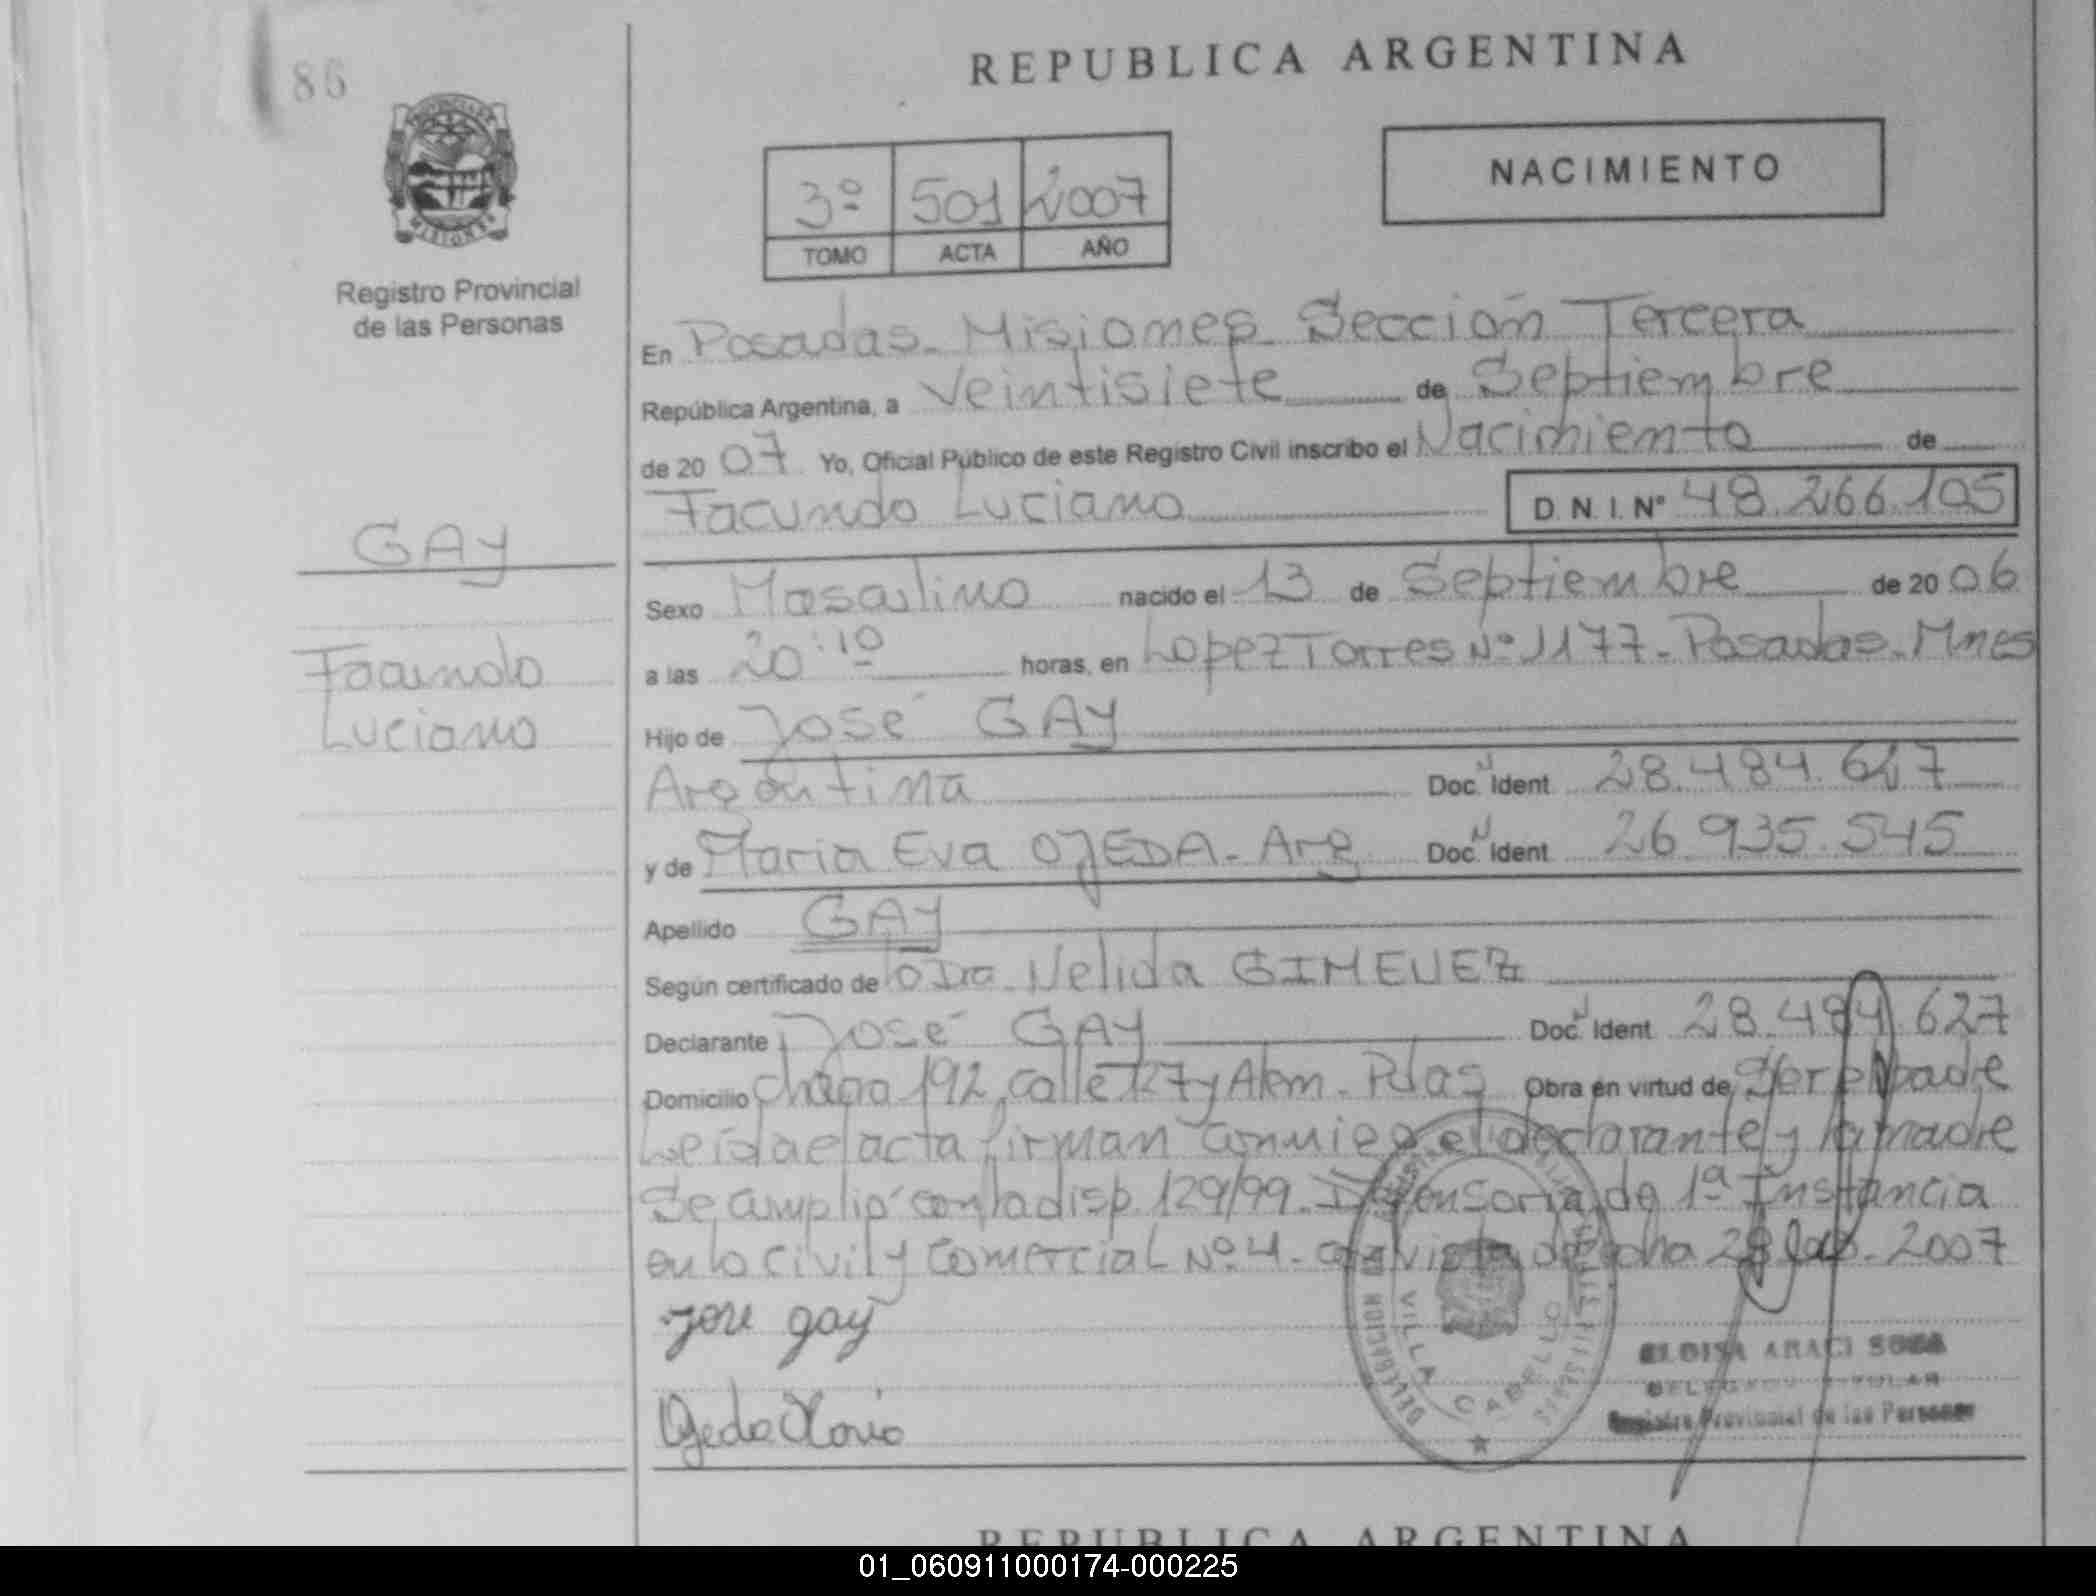 86
REPUBLICA ARGENTINA
NACIMIENTO
3º 501 2007
TOMO ACTA AÑO
PROVINCIA DE
MISIONES
Registro Provincial
de las Personas
En Posadas - Misiones Sección Tercera
República Argentina, a Veintisiete de Septiembre
de 2007 Yo, Oficial Público de este Registro Civil inscribo el Nacimiento de
Facundo Luciano D. N. I. Nº 48.266.105
GAY
Sexo Masculino nacido el 13 de Septiembre de 2006
Facundo
Luciano
a las 20:10 horas, en Lopez Torres Nº 1177 - Posadas - Mnes
Hijo de José GAY
Argentina Doc. Ident. 28.484.627
y de Maria Eva OJEDA - Arg Doc. Ident. 26.935.545
Apellido GAY
Según certificado de la Dra. Nelida GIMENEZ
Declarante José GAY Doc. Ident. 28.484.627
Domicilio Chacra 192, calle 127 y Alem - Pdas Obra en virtud de Ser el padre
Leida el acta firman conmigo el declarante y la madre
Se amplió con la disp. 129/99. Defensoria de 1ª Instancia
en lo Civil y Comercial Nº 4 - con vista de fecha 2007
Jose gay
Ojeda Maria
DELEGACION
VILLA CABELLO
ELOISA ARACI SOSA
DELEGADO TITULAR
Registro Provincial de las Personas
REPUBLICA ARGENTINA
01_060911000174-000225